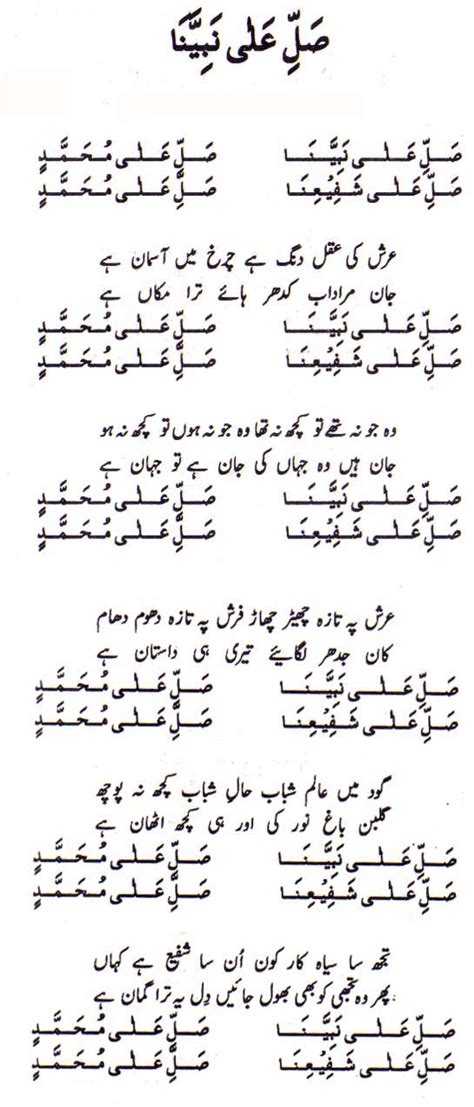 صَلِّ عَلٰی نَبِیَّنَا
صَلِّ عَلٰی نَبِیَّنَا صَلِّ عَلٰی مُحَمَّدٍ
صَلِّ عَلٰی شَفِیْعِنَا صَلِّ عَلٰی مُحَمَّدٍ
عرش کی عقل دنگ ہے چرخ میں آسمان ہے
جان مراداب کدھر ہائے ترا مکاں ہے
صَلِّ عَلٰی نَبِیَّنَا صَلِّ عَلٰی مُحَمَّدٍ
صَلِّ عَلٰی شَفِیْعِنَا صَلِّ عَلٰی مُحَمَّدٍ
وہ جو نہ تھے تو کچھ نہ تھا وہ جو نہ ہوں تو کچھ نہ ہو
جان ہیں وہ جہاں کی جان ہے تو جہان ہے
صَلِّ عَلٰی نَبِیَّنَا صَلِّ عَلٰی مُحَمَّدٍ
صَلِّ عَلٰی شَفِیْعِنَا صَلِّ عَلٰی مُحَمَّدٍ
عرش پہ تازہ چھیڑ چھاڑ فرش پہ تازہ دھوم دھام
کان جدھر لگائیے تیری ہی داستان ہے
صَلِّ عَلٰی نَبِیَّنَا صَلِّ عَلٰی مُحَمَّدٍ
صَلِّ عَلٰی شَفِیْعِنَا صَلِّ عَلٰی مُحَمَّدٍ
گود میں عالم شباب حالِ شباب کچھ نہ پوچھ
گلبن باغ نور کی اور ہی کچھ اٹھان ہے
صَلِّ عَلٰی نَبِیَّنَا صَلِّ عَلٰی مُحَمَّدٍ
صَلِّ عَلٰی شَفِیْعِنَا صَلِّ عَلٰی مُحَمَّدٍ
تجھ سا سیاہ کار کون اُن سا شفیع ہے کہاں
پھر وہ تجھی کو بھی بھول جائیں دِل یہ ترا گمان ہے
صَلِّ عَلٰی نَبِیَّنَا صَلِّ عَلٰی مُحَمَّدٍ
صَلِّ عَلٰی شَفِیْعِنَا صَلِّ عَلٰی مُحَمَّدٍ